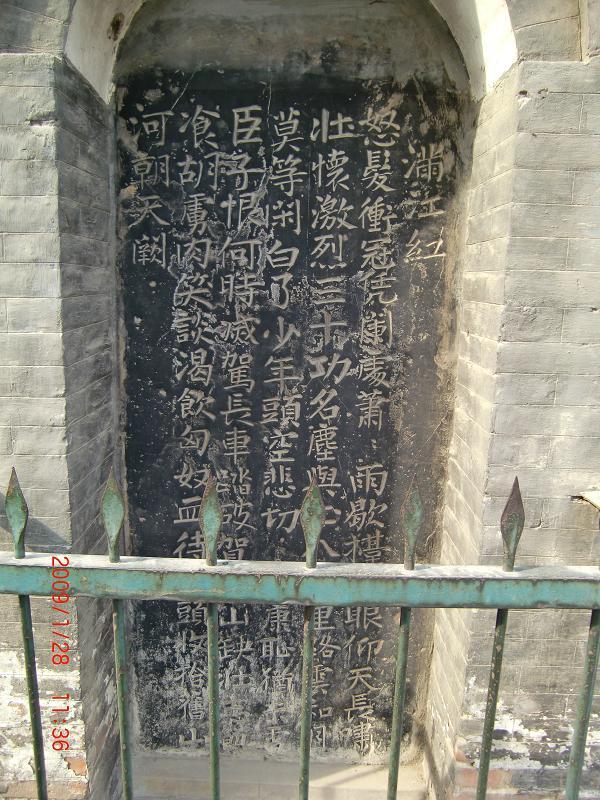 滿江紅
怒髮衝冠凭闌處蕭〻雨歇擡眼仰天長嘯
壯懷激烈三十功名塵與土八里路雲和月
莫等閑白了少年頭空悲切康恥猶未雪
臣子恨何時滅駕長車踏破賀山缺壯志飢
飡胡虜肉笑談渴飲匈奴血待頭收拾舊山
河朝天闕
2009/1/28 11:36